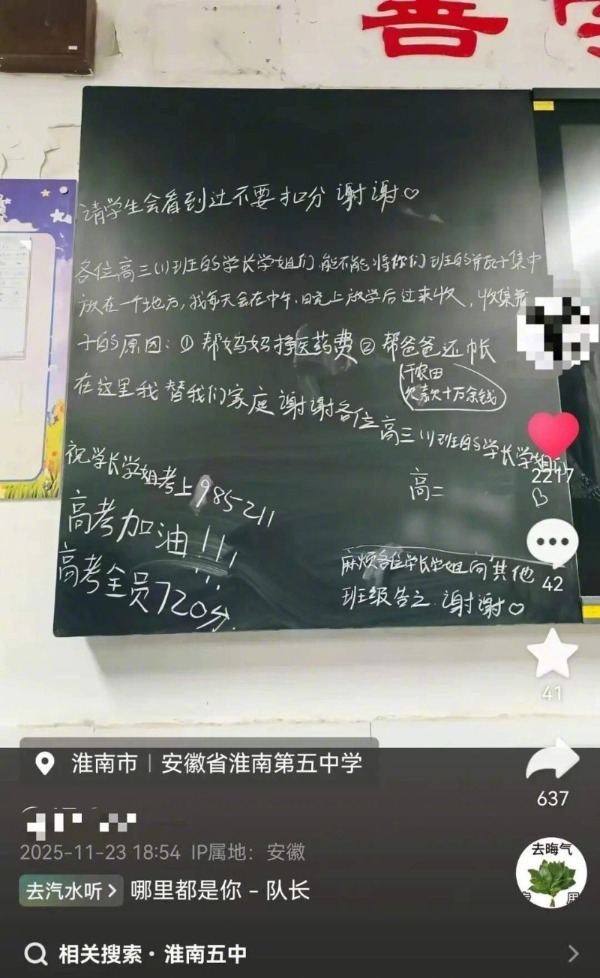 善
请学生会看到过不要扣分 谢谢♡
各位高三(1)班的学长学姐们,能不能将你们班的瓶子集中
放在一个地方,我每天会在中午、晚上放学后过来收,收集瓶
子的原因:① 帮妈妈挣医药费② 帮爸爸还帐
欠款十万余钱
在这里我替我们家庭 谢谢各位高三(1)班的学长学姐
高二
祝学长学姐考上985211
高考加油!!!
高考全员720分.
麻烦各位学长学姐向其他
班级告之.谢谢♡
2217
42
41
637
淮南市 | 安徽省淮南第五中学
2025-11-23 18:54 IP属地:安徽
去汽水听 > 哪里都是你 - 队长
去晦气
相关搜索 · 淮南五中